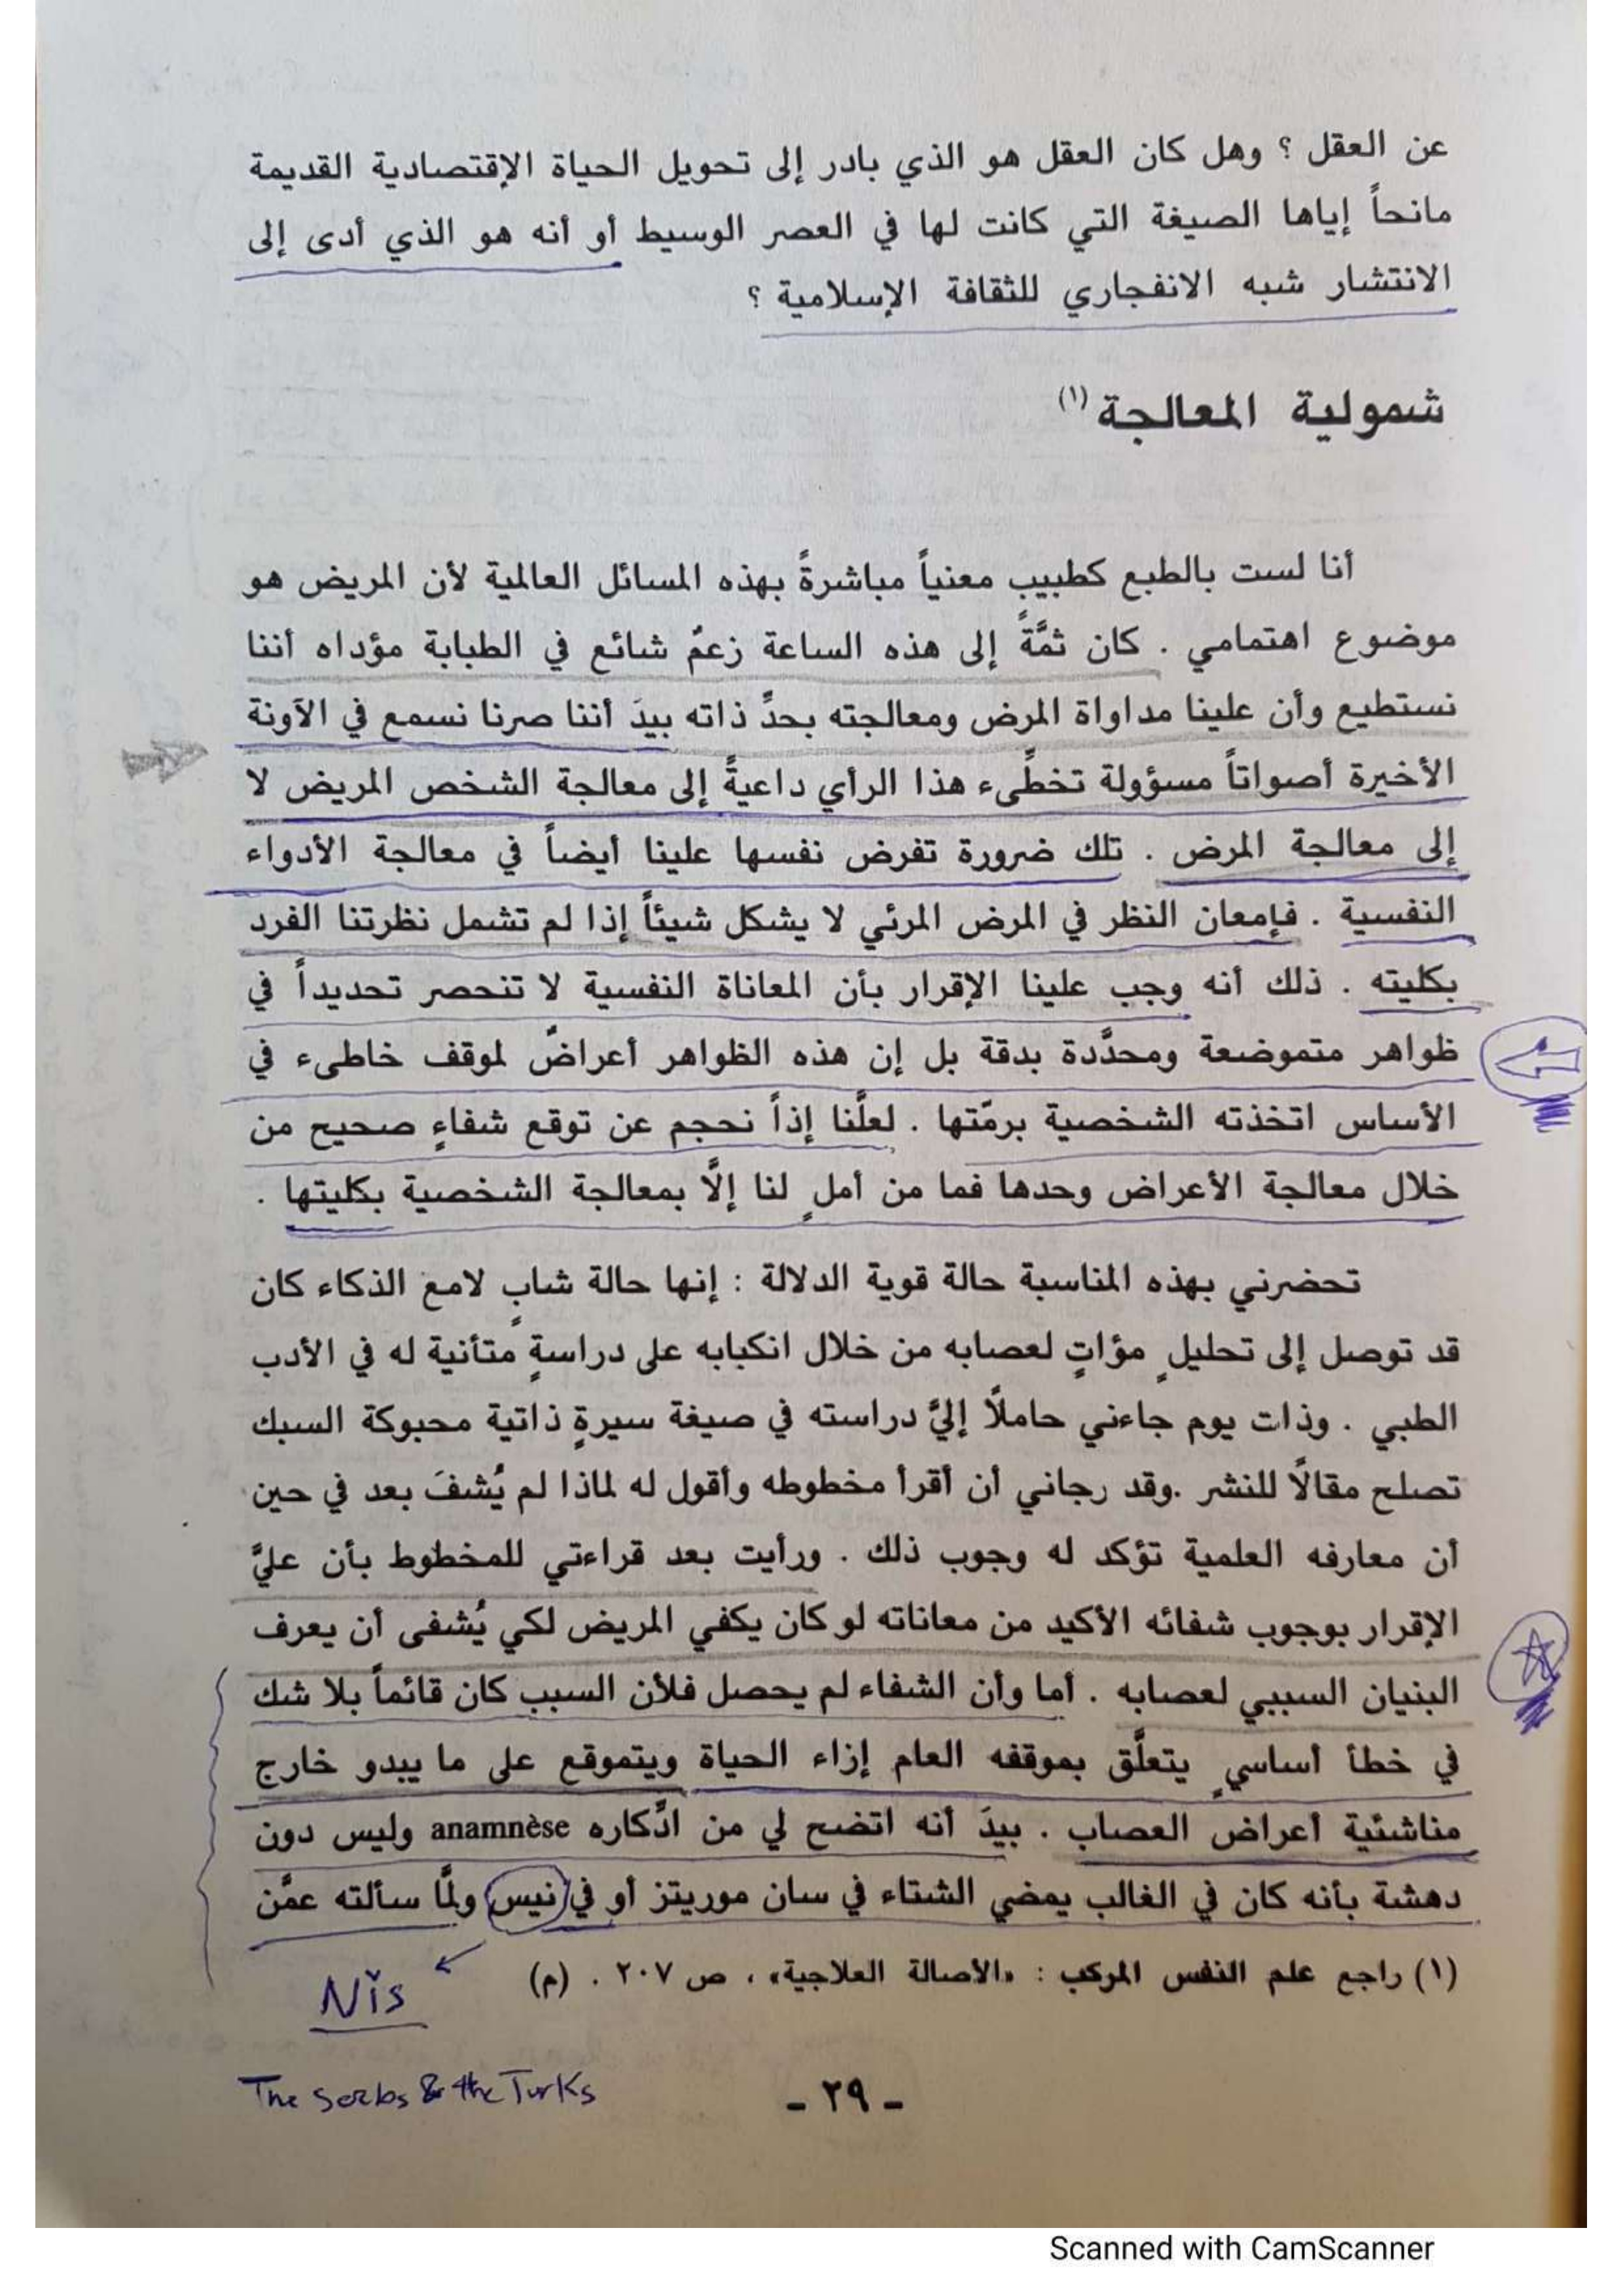 عن العقل ؟ وهل كان العقل هو الذي بادر إلى تحويل الحياة الإقتصادية القديمة
مانحاً إياها الصيغة التي كانت لها في العصر الوسيط أو أنه هو الذي أدى إلى
الانتشار شبه الانفجاري للثقافة الإسلامية ؟
شمولية المعالجة (١)
أنا لست بالطبع كطبيب معنياً مباشرةً بهذه المسائل العالمية لأن المريض هو
موضوع اهتمامي . كان ثمَّةً إلى هذه الساعة زعمٌ شائع في الطبابة مؤداه أننا
نستطيع وأن علينا مداواة المرض ومعالجته بحدِّ ذاته بيدَ أننا صرنا نسمع في الآونة
الأخيرة أصواتاً مسؤولة تخطِّىء هذا الرأي داعيةً إلى معالجة الشخص المريض لا
إلى معالجة المرض . تلك ضرورة تفرض نفسها علينا أيضاً في معالجة الأدواء
النفسية . فإمعان النظر في المرض المرئي لا يشكل شيئاً إذا لم تشمل نظرتنا الفرد
بكليته . ذلك أنه وجب علينا الإقرار بأن المعاناة النفسية لا تنحصر تحديداً في
ظواهر متموضعة ومحدَّدة بدقة بل إن هذه الظواهر أعراضٌ لموقف خاطىء في
الأساس اتخذته الشخصية برمّتها . لعلَّنا إذاً نحجم عن توقع شفاءٍ صحيح من
خلال معالجة الأعراض وحدها فما من أملٍ لنا إلَّا بمعالجة الشخصية بكليتها .
تحضرني بهذه المناسبة حالة قوية الدلالة : إنها حالة شابٍ لامع الذكاء كان
قد توصل إلى تحليلٍ مؤاتٍ لعصابه من خلال انكبابه على دراسةٍ متأنية له في الأدب
الطبي . وذات يوم جاءني حاملًا إليَّ دراسته في صيغة سيرةٍ ذاتية محبوكة السبك
تصلح مقالًا للنشر .وقد رجاني أن أقرأ مخطوطه وأقول له لماذا لم يُشفَ بعد في حين
أن معارفه العلمية تؤكد له وجوب ذلك . ورأيت بعد قراءتي للمخطوط بأن عليَّ
الإقرار بوجوب شفائه الأكيد من معاناته لو كان يكفي المريض لكي يُشفى أن يعرف
البنيان السببي لعصابه . أما وأن الشفاء لم يحصل فلأن السبب كان قائماً بلا شك
في خطأ أساسيٍ يتعلَّق بموقفه العام إزاء الحياة ويتموقع على ما يبدو خارج
مناشئية أعراض العصاب . بيدَ أنه اتضح لي من ادِّكاره anamnèse وليس دون
دهشة بأنه كان في الغالب يمضي الشتاء في سان موريتز أو في نيس ولمَّا سألته عمَّن
(١) راجع علم النفس المركب : «الأصالة العلاجية» ، ص ٢٠٧ . (م)
Nĭs
The Serbs & the Turks
- ٢٩ -
Scanned with CamScanner